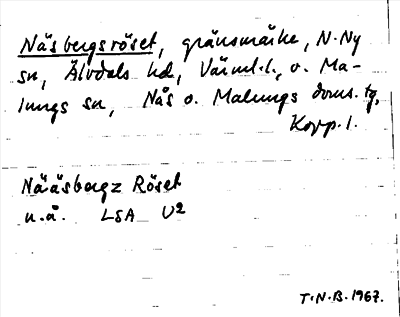 Näsbergsröset, gränsmärke, N. Ny
sn, Älvdals hd, Värml.l., o. Ma-
lungs sn, Nås o. Malungs doms. tg,
Kopp. l.
Nääsbergz Röset
u.å. LSA U2
T.N.B. 1967.